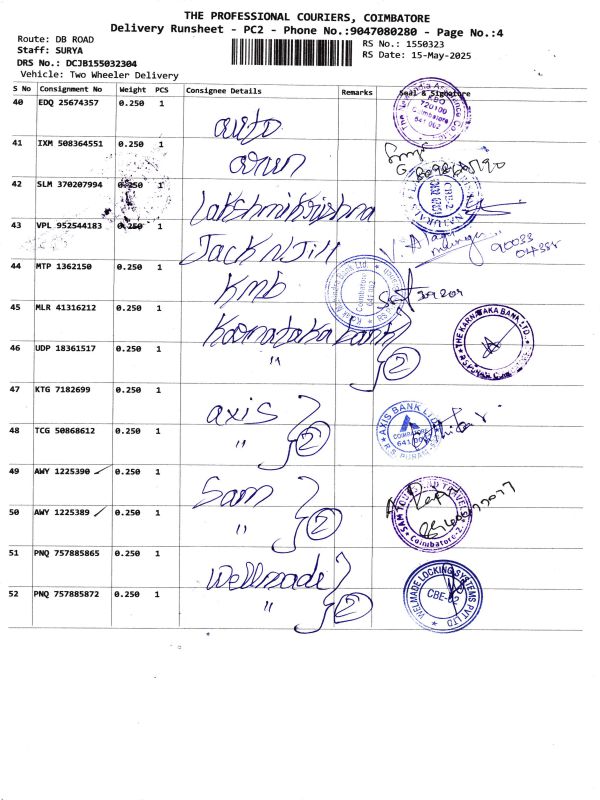 THE PROFESSIONAL COURIERS, COIMBATORE
Delivery Runsheet - PC2 - Phone No.:9047080280 - Page No.:4
Route: DB ROAD
RS No.: 1550323
Staff: SURYA
RS Date: 15-May-2025
DRS No.: DCJB155032304
Vehicle: Two Wheeler Delivery
S No Consignment No Weight PCS Consignee Details Remarks Seal & Signature
40 EDQ 25674357 0.250 1 auto
720100
Coimbatore
641 002
41 IXM 508364551 0.250 1 arun
42 SLM 370207994 0.250 1 Lakshmikrishna
CBE-2
43 VPL 952544183 0.250 1 Jack N Jill
90033
04355
44 MTP 1362150 0.250 1 kmb
Coimbatore
641 002
45 MLR 41316212 0.250 1 Karnataka bank
THE KARNATAKA BANK LTD.
46 UDP 18361517 0.250 1 " 2
47 KTG 7182699 0.250 1 axis
AXIS BANK LTD
COIMBATORE
641 002
R.S. PURAM
48 TCG 50868612 0.250 1 "
49 AWY 1225390 0.250 1 Sam
SAM TOURS AND TRAVELS
Coimbatore-2.
50 AWY 1225389 0.250 1 " 2
51 PNQ 757885865 0.250 1 Wellmade
WELMADE LOCKING SYSTEMS PVT LTD
CBE-02
52 PNQ 757885872 0.250 1 " 2